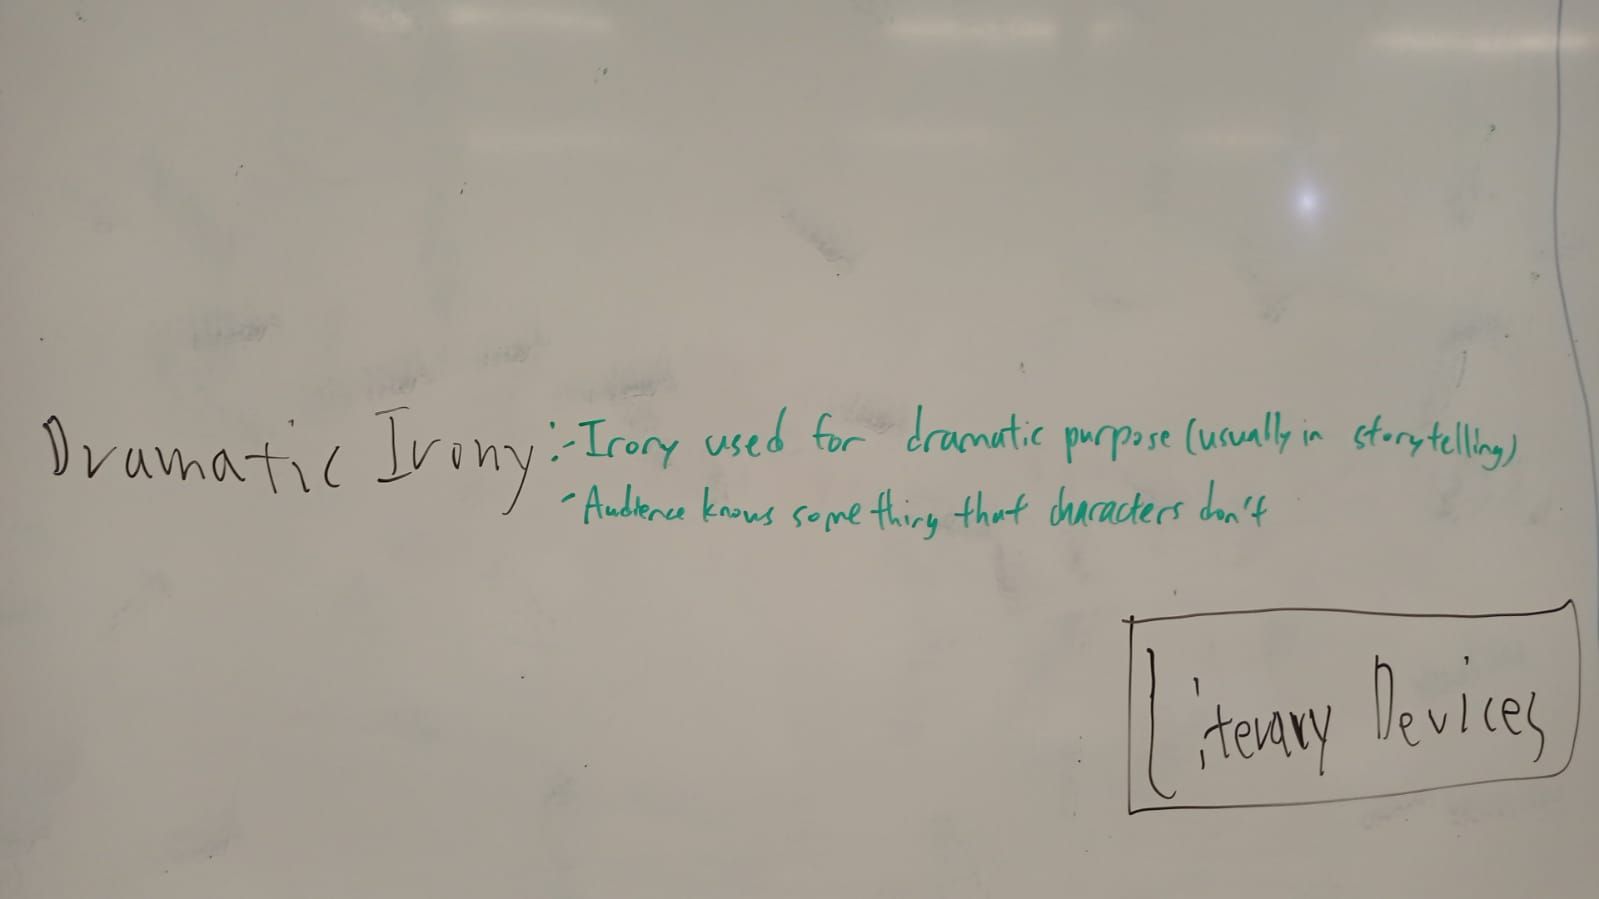 Dramatic Irony: - Irony used for dramatic purpose (usually in storytelling)
- Audience knows something that characters don't
Literary Devices